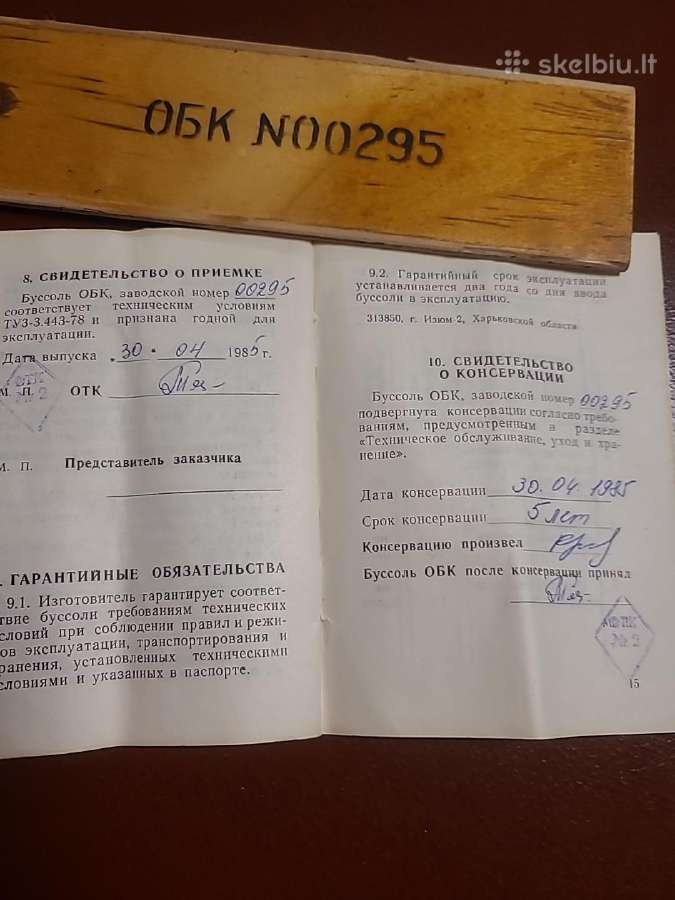 skelbiu.lt
ОБК N00295
8. СВИДЕТЕЛЬСТВО О ПРИЕМКЕ
Буссоль ОБК, заводской номер 00295
соответствует техническим условиям
ТУ3-3.443-78 и признана годной для
эксплуатации.
Дата выпуска „30" 04 1985 г.
М. П. ОТК
ОТК
№ 2
М. П. Представитель заказчика
ГАРАНТИЙНЫЕ ОБЯЗАТЕЛЬСТВА
9.1. Изготовитель гарантирует соответ-
ствие буссоли требованиям технических
словий при соблюдении правил и режи-
ов эксплуатации, транспортирования и
ранения, установленных техническими
словиями и указанных в паспорте.
9.2. Гарантийный срок эксплуатации
устанавливается два года со дня ввода
буссоли в эксплуатацию.
313850, г. Изюм-2, Харьковской области
10. СВИДЕТЕЛЬСТВО
О КОНСЕРВАЦИИ
Буссоль ОБК, заводской номер 00295
подвергнута консервации согласно требо-
ваниям, предусмотренным в разделе
«Техническое обслуживание, уход и хра-
нение».
Дата консервации 30.04.1985
Срок консервации 5 лет
Консервацию произвел
Буссоль ОБК после консервации принял
№ 2
15